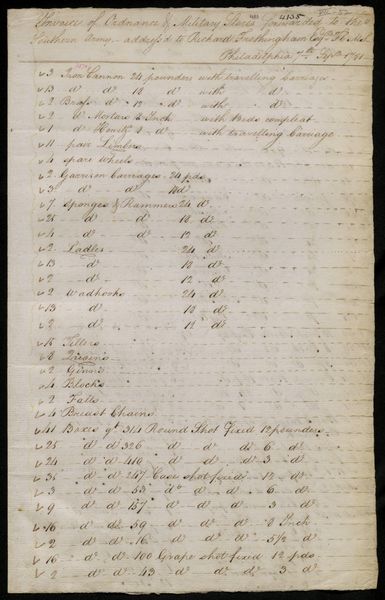 4135
Invoice of Ordnance & Military Stores forwarded to the
Southern Army, address'd to Richard Frothingham Esqr
Philadelphia 7th Septr 1781
3 Iron Cannon 24 pounders with travelling Carriages
13 do do 18 do with do
2 Brass do 12 do with do
2 do Mortars Inch with beds compleat
1 do Howitz do with travelling Carriage
11 pair Limbers
4 spare Wheels
2 Garrison Carriages 24 pds
3 do do 18 d
7 Sponges & Rammers 24 do
25 do do 18 do
4 do do 12 do
2 Ladles 24 do
13 do 18 do
2 do 12 do
2 Wadhooks 24 do
13 do 18 do
2 do 12 do
15 Tillers
8
2 Ginns
4 Blocks
2 Falls
4 Breast Chains
41 Boxes qt 314 Round Shot fixed 12 pounders
25 do do 326 do do do 6 do
24 do do 410 do do do 3 do
31 do do 247 Case shot fixed 12 do
3 do do 53 do do do 6 do
9 do do 157 do do do 3 do
16 do do 59 do do do 8 Inch
2 do do 16 do do do 5½ do
16 do do 100 Grape shot fixed 12 pds
2 do do 43 do do do 3 do